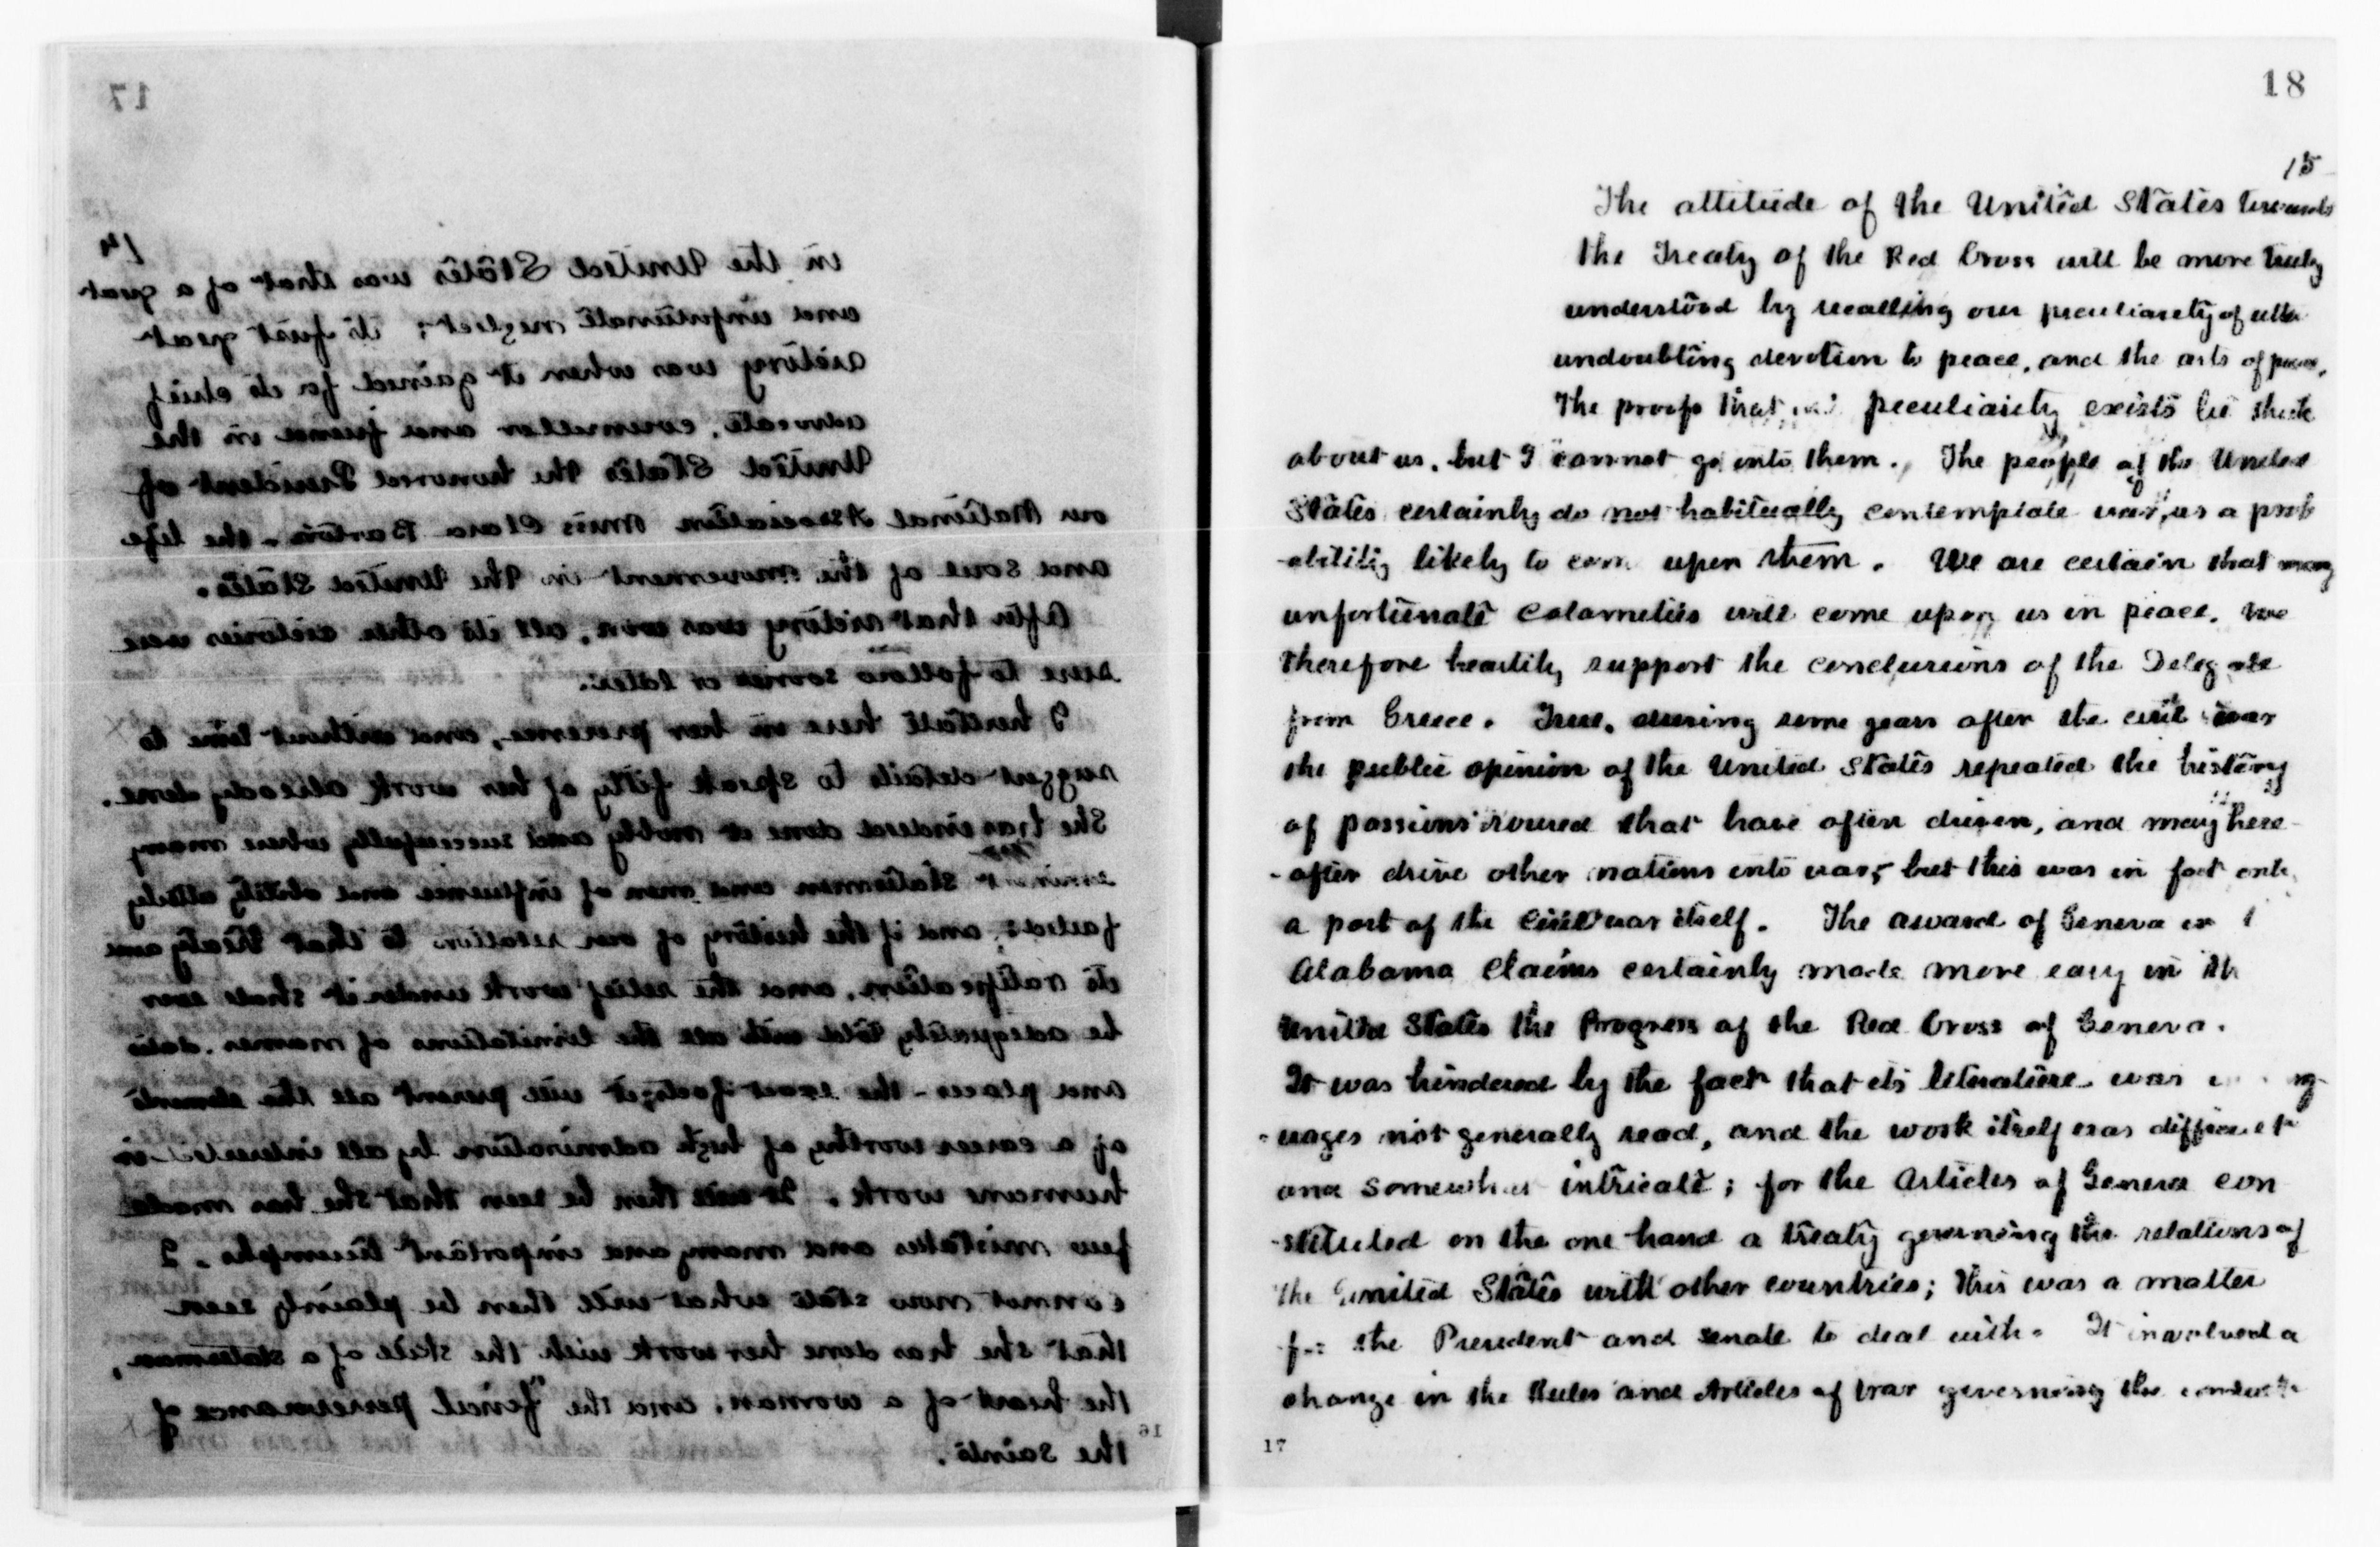 17
14
in the United States was that of a great
and unfortunate neglect; its first great
victory was when it gained for its chief
advocate, counsellor and friend in the
United States the honored President of
our National Association Miss Clara Barton - the life
and soul of the movement in the United States.
After that victory was won, all its other victories were
sure to follow sooner or later.
I hesitate here in her presence, and without time to
suggest details to speak fitly of her work already done.
She has indeed done it nobly and successfully where many
eminent statesmen and men of influence and ability utterly
failed; and if the history of our relation to that treaty and
its ratification, and the relief work under it shall ever
be adequately told with all the limitations of manner, date
and places - the least will present all the elements
of a career worthy of high admiration by all interested in
humane work. It will then be seen that she has made
few mistakes and many and important triumphs. I
cannot now state what will then be plainly seen
that she has done her work with the skill of a statesman,
the heart of a woman, and the "final perseverance of
the saints".
16
18
15
The attitude of the United States towards
the Treaty of the Red Cross will be more truly
understood by recalling our peculiarity of utter
undoubting devotion to peace, and the arts of peace.
The proofs that peculiarity exists lie thick
about us, but I cannot go into them. The people of the United
States certainly do not habitually contemplate war, as a prob
-ability likely to come upon them. We are certain that many
unfortunate calamities will come upon us in peace. We
therefore heartily support the conclusions of the Delegate
from Greece. True, during some years after the civil war
the public opinion of the United States repeated the history
of passions roused that have often driven, and may here-
-after drive other nations into war, but this was in fact only
a part of the Civil war itself. The award of Geneva in
Alabama Claims certainly made more easy in the
United States the Progress of the Red Cross of Geneva.
It was hindered by the fact that its literature was
-uages not generally read, and the work itself was difficult
and somewhat intricate; for the Articles of Geneva con
-stituted on the one hand a treaty governing the relations of
the United States with other countries; this was a matter
for the President and Senate to deal with. It involved a
change in the Rules and Articles of War governing the conduct
17